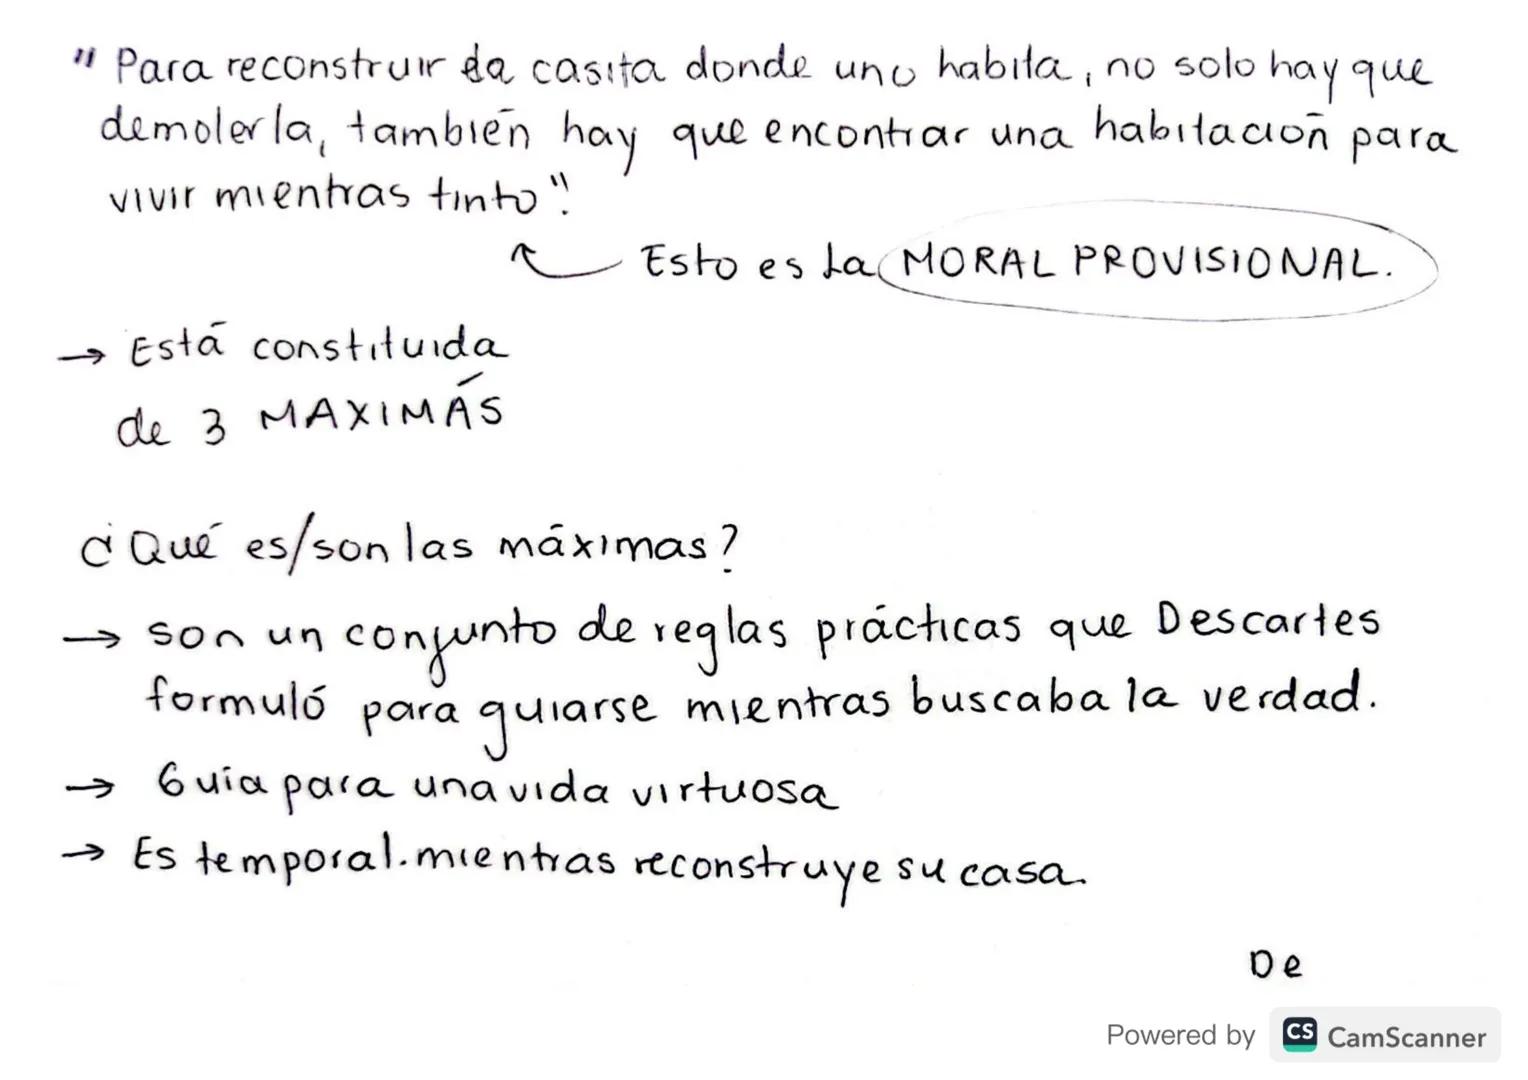 " Para reconstruir la casita donde uno habita, no solo hay que
demolerla, también hay que encontrar una habitación para
vivir mientras tinto".
Esto es la MORAL PROVISIONAL.
→ Está constituida
de 3 MAXIMÁS
¿Qué es/son las máximas?
→ son un conjunto de reglas prácticas que Descartes
formuló para guiarse mientras buscaba la verdad.
→ Guia para una vida virtuosa
→ Es temporal. mientras reconstruye su casa.
De
Powered by CS CamScanner